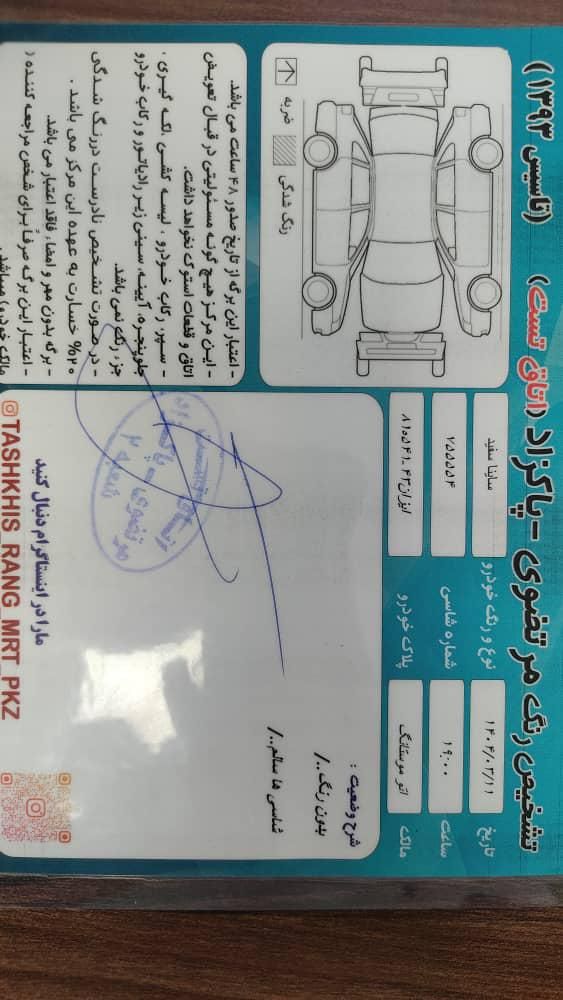 تشخیص رنگ مرتضوی - پاکزاد (اتاق تست) (تاسیس ۱۳۹۳)
تاریخ ۱۴۰۴/۰۳/۱۱
ساعت ۱۹:۰۰
مالک اتو موستانگ
نوع و رنگ خودرو ساینا سفید
شماره شاسی ۷۵۵۵۵۴
پلاک خودرو ایران۴۳-۸۱۵۵۴۱
ضربه
رنگ شدگی
شرح وضعیت :
بدون رنگ../
شاسی ها سالم../
- اعتبار این برگه از تاریخ صدور ۴۸ ساعت می باشد.
- این مرکز هیچ گونه مسئولیتی در قبال تعویض
اتاق و قطعات استوک نخواهد داشت.
- سپر، رکاب خودرو ، لیسه کشی لکه گیری ،
جلوپنجره، آیینه، سینی زیر رادیاتور و رکاب خودرو
جزء رنگ نمی باشد.
- در صورت تشخیص نادرست در رنگ شدگی
۲۰% خسارت به عهده این مرکز می باشد .
- برگه بدون مهر و امضاء فاقد اعتبار می باشد.
- اعتبار این برگه صرفاً برای شخص مراجعه کننده (
مالک خودرو) میباشد.
مرتضوی - پاکزاد
شعبه ۲
ما را در اینستاگرام دنبال کنید
TASHKHIS_RANG_MRT_PKZ